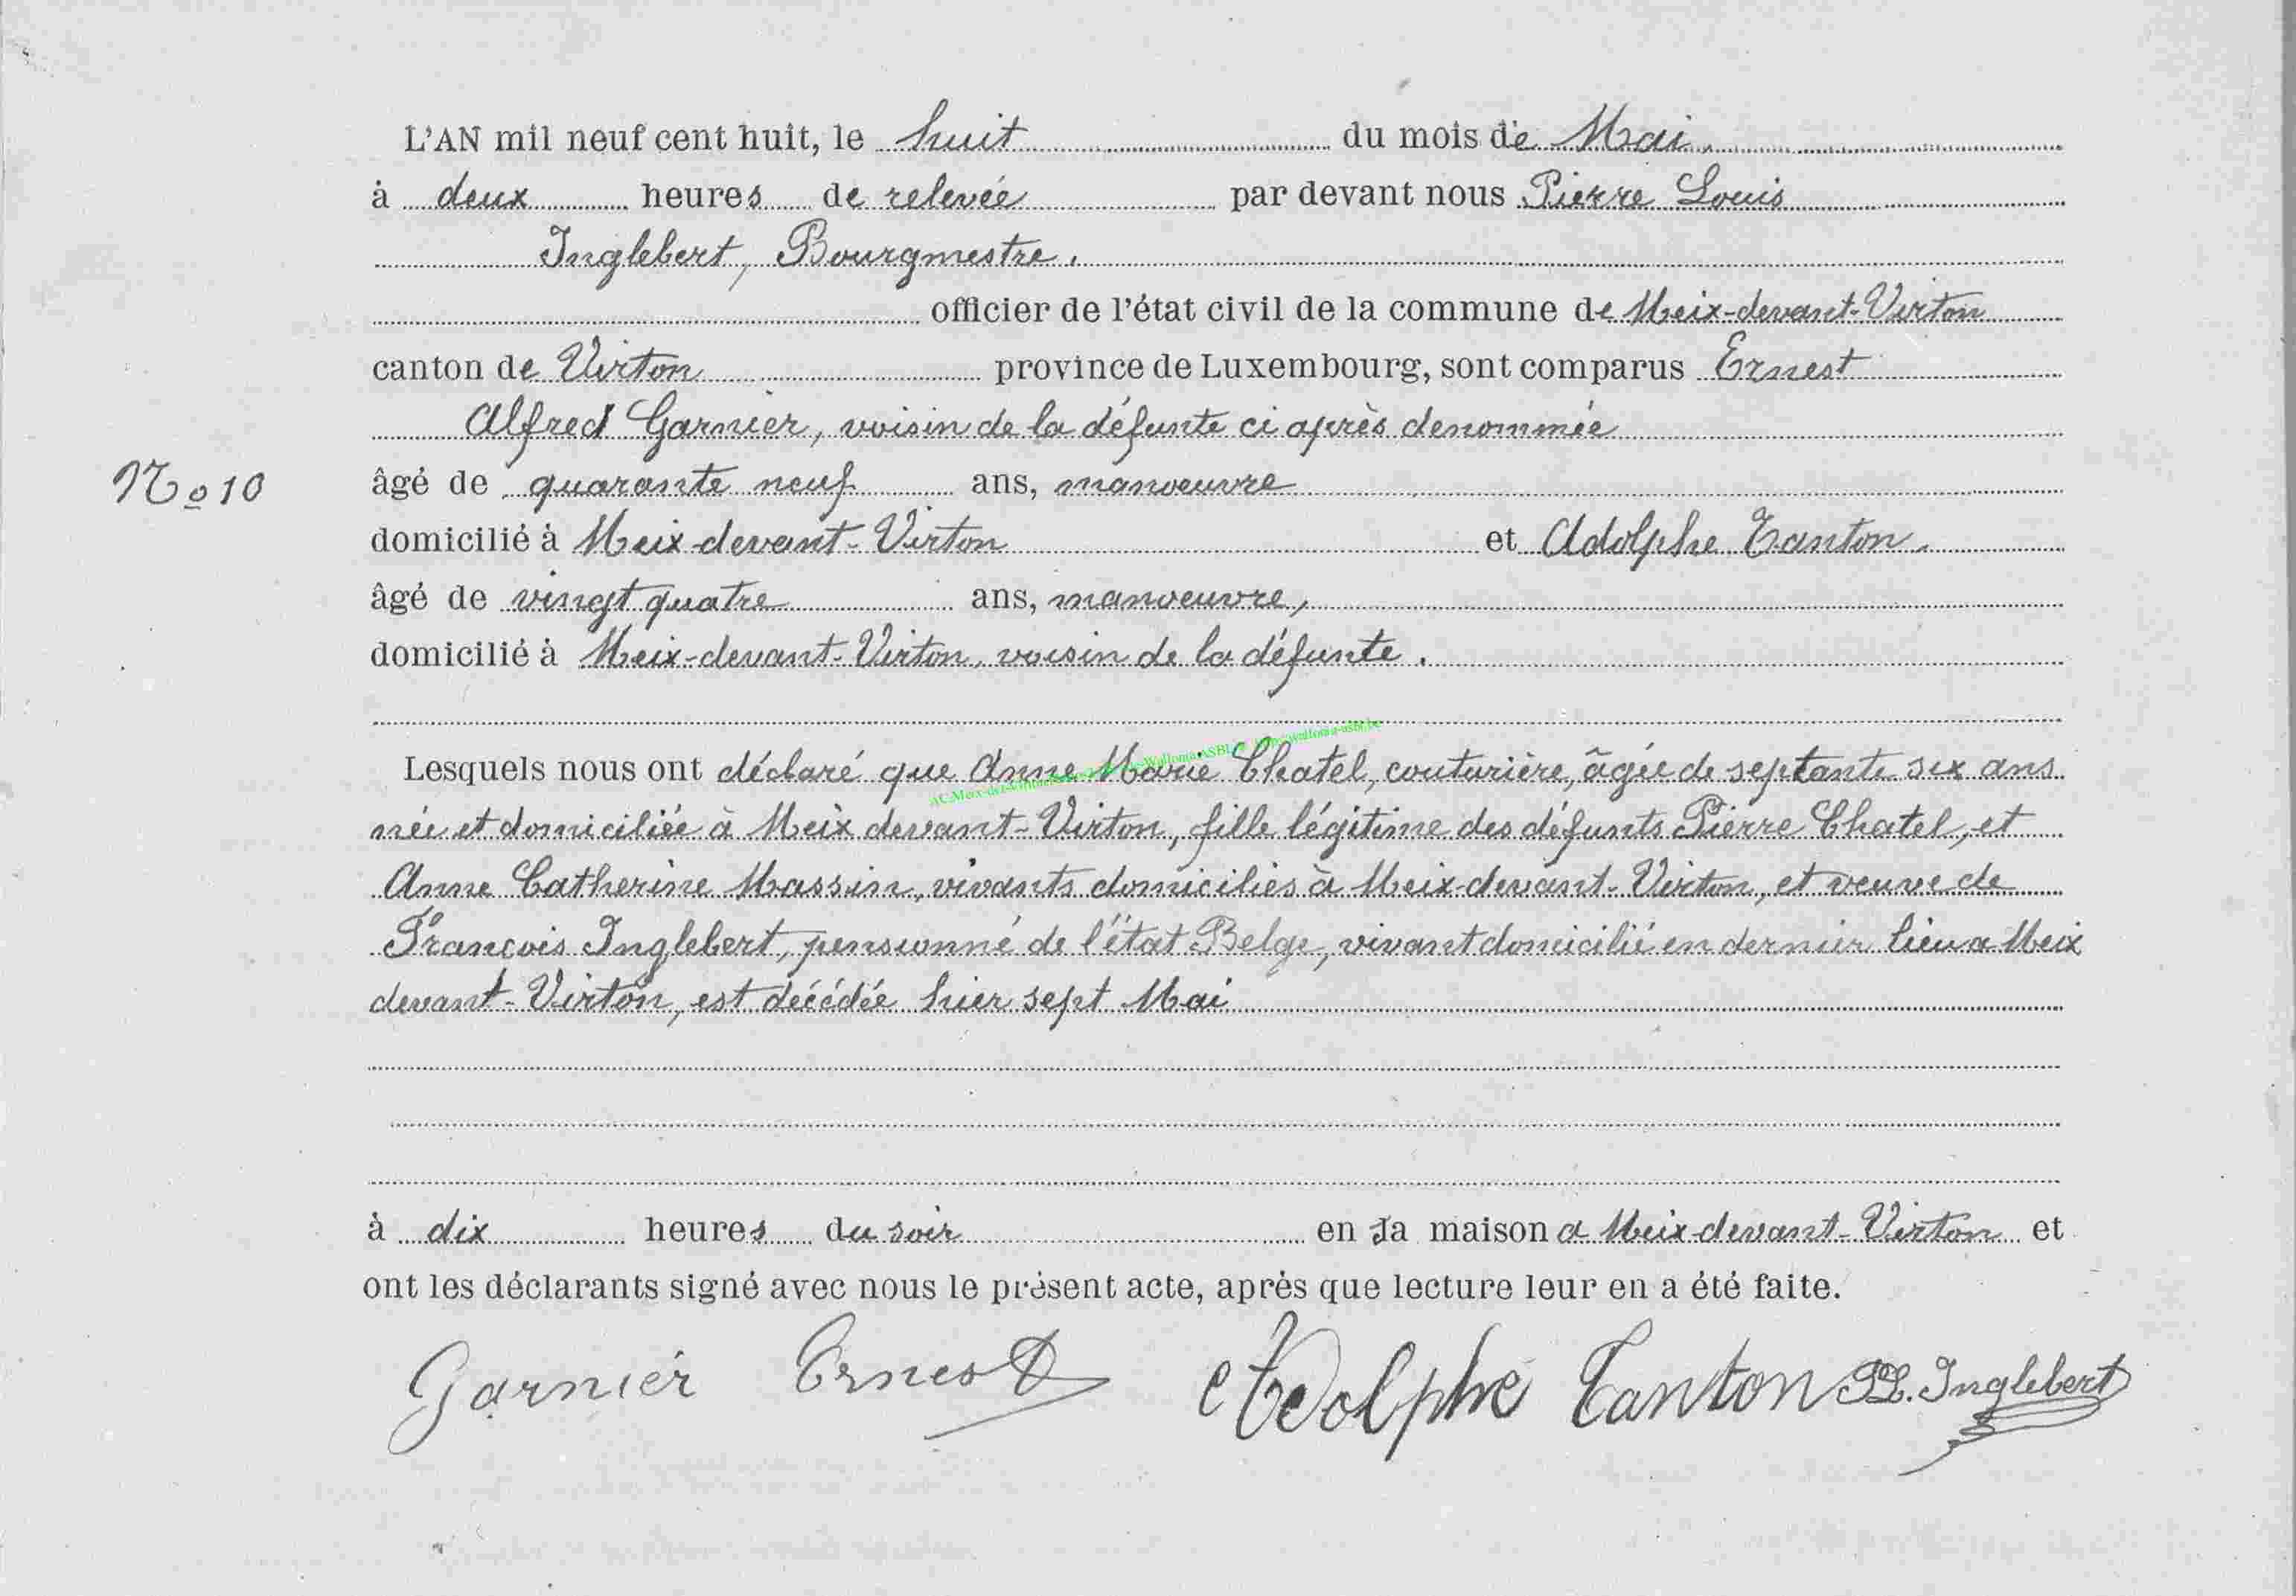 L'AN mil neuf cent huit, le huit du mois de Mai.
à deux heures de relevée par devant nous Pierre Louis
Inglebert, Bourgmestre.
officier de l'état civil de la commune de Meix-devant-Virton
canton de Virton province de Luxembourg, sont comparus Ernest
Alfred Garnier, voisin de la défunte ci après denommée
No 10
âgé de quarante neuf ans, manoeuvre
domicilié à Meix-devant-Virton et Adolphe Tanton.
âgé de vingt quatre ans, manoeuvre,
domicilié à Meix-devant-Virton, voisin de la défunte.
Lesquels nous ont déclaré que Anne Marie Chatel, couturière, âgée de septante six ans
née et domiciliée à Meix devant-Virton, fille légitime des défunts Pierre Chatel, et
Anne Catherine Massin, vivants domiciliés à Meix-devant-Virton, et veuve de
François Inglebert, pensionné de l'état Belge, vivant domicilié en dernier lieu a Meix
devant-Virton, est décédée hier sept Mai
à dix heures du soir en sa maison a Meix-devant-Virton et
ont les déclarants signé avec nous le présent acte, après que lecture leur en a été faite.
Garnier Ernest Adolphe Tanton PL. Inglebert